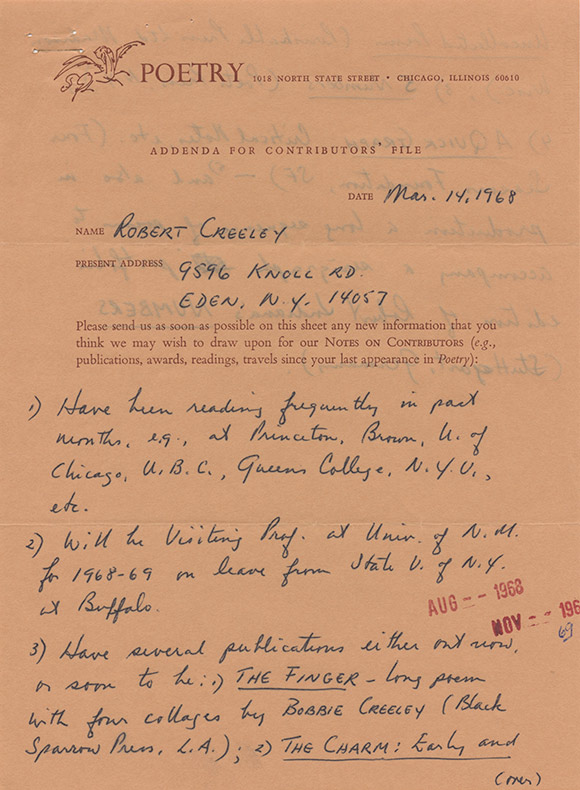 POETRY 1018 NORTH STATE STREET • CHICAGO, ILLINOIS 60610
ADDENDA FOR CONTRIBUTORS' FILE
DATE Mar. 14, 1968
NAME ROBERT CREELEY
PRESENT ADDRESS 9596 KNOLL RD.
EDEN, N.Y. 14057
Please send us as soon as possible on this sheet any new information that you
think we may wish to draw upon for our NOTES ON CONTRIBUTORS (e.g.,
publications, awards, readings, travels since your last appearance in Poetry):
1) Have been reading frequently in past
months, e.g., at Princeton, Brown, U. of
Chicago, U.B.C., Queens College, N.Y.U.,
etc.
2) Will be Visiting Prof. at Univ. of N.M.
for 1968-69 on leave from State U. of N.Y.
at Buffalo.
AUG -- 1968
NOV -- 196
69
3) Have several publications either out now,
or soon to be: 1) THE FINGER - long poem
with four collages by BOBBIE CREELEY (Black
Sparrow Press, L.A.); 2) THE CHARM: Early and
(over)